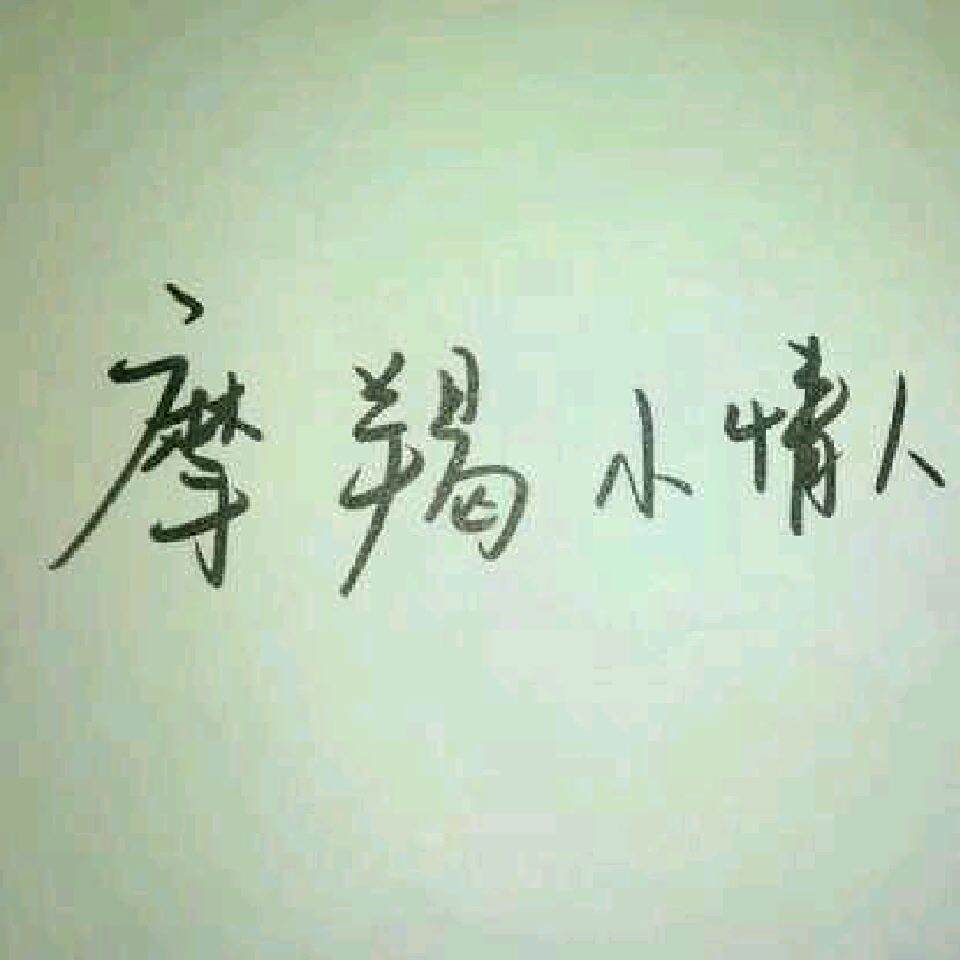 摩羯小情人